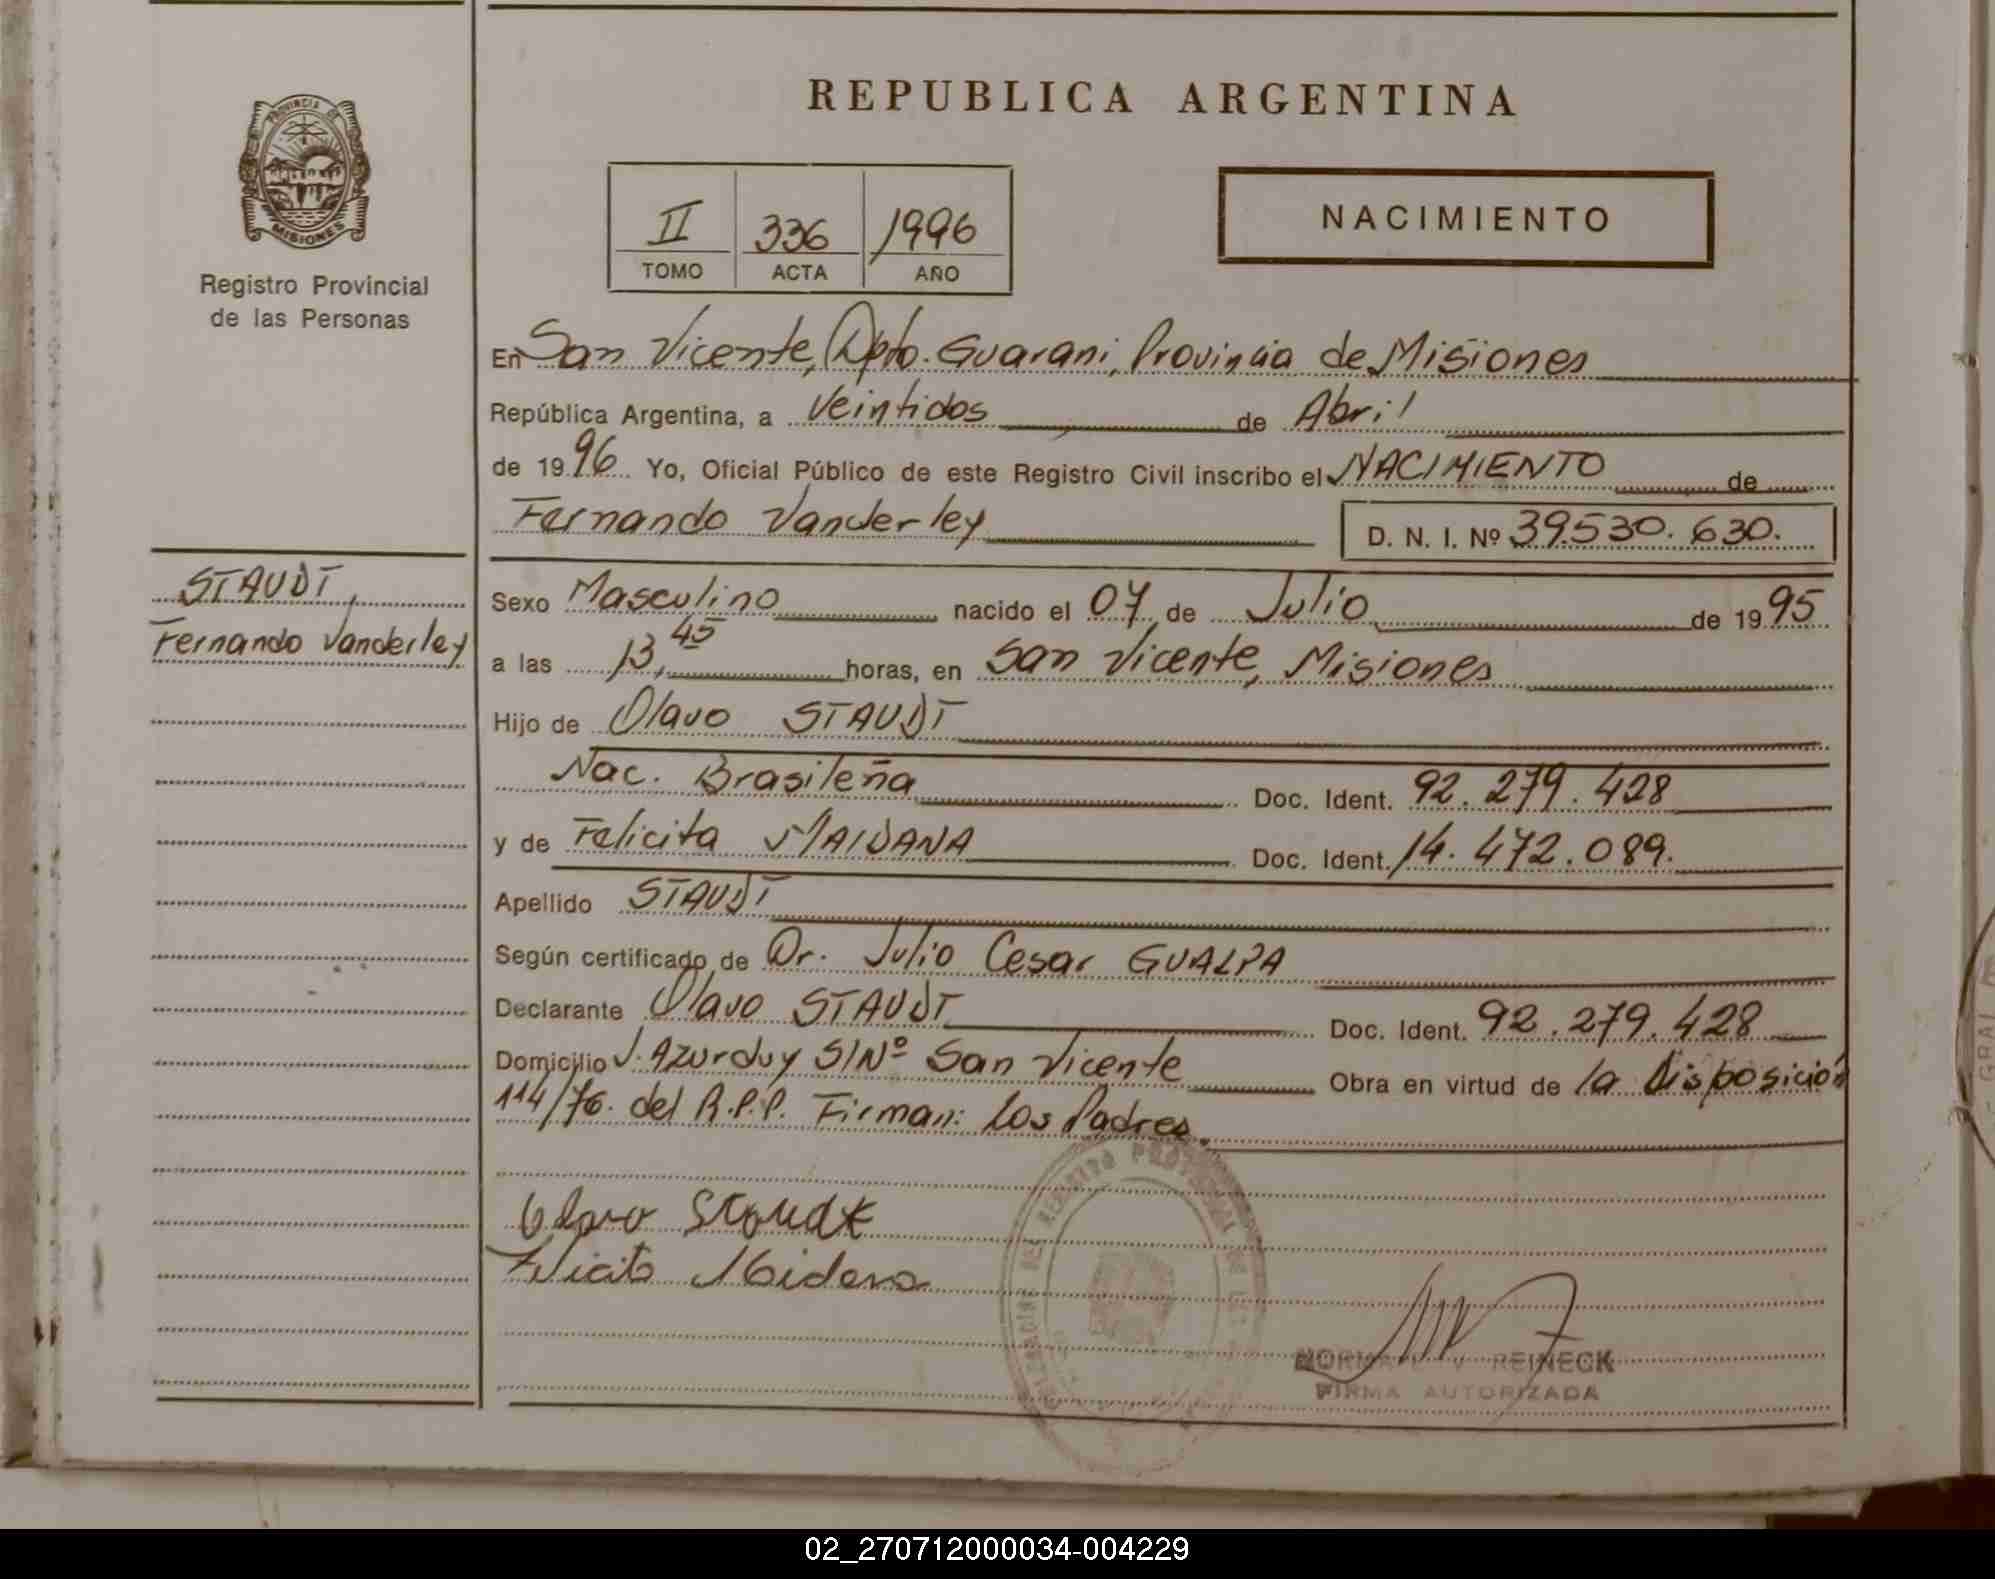 REPUBLICA ARGENTINA
PROVINCIA DE
MISIONES
Registro Provincial
de las Personas
II 336 1996
TOMO ACTA AÑO
NACIMIENTO
En San Vicente, Dpto. Guarani, Provincia de Misiones
República Argentina, a Veintidos de Abril
de 1996 Yo, Oficial Público de este Registro Civil inscribo el NACIMIENTO de
Fernando Vanderley D. N. I. Nº 39.530.630.
STAUDT,
Fernando Vanderley
Sexo Masculino nacido el 07 de Julio de 1995
a las 13,45 horas, en San Vicente, Misiones
Hijo de Olavo STAUDT
Nac. Brasileña Doc. Ident. 92.279.428
y de Felicita MAIDANA Doc. Ident. 14.472.089.
Apellido STAUDT
Según certificado de Dr. Julio Cesar GUALPA
Declarante Olavo STAUDT Doc. Ident. 92.279.428
Domicilio J. Azurduy S/Nº San Vicente Obra en virtud de la Disposición
114/76. del R.P.P. Firman: Los Padres.
Olavo Staudt
REINECK
FIRMA AUTORIZADA
02_270712000034-004229